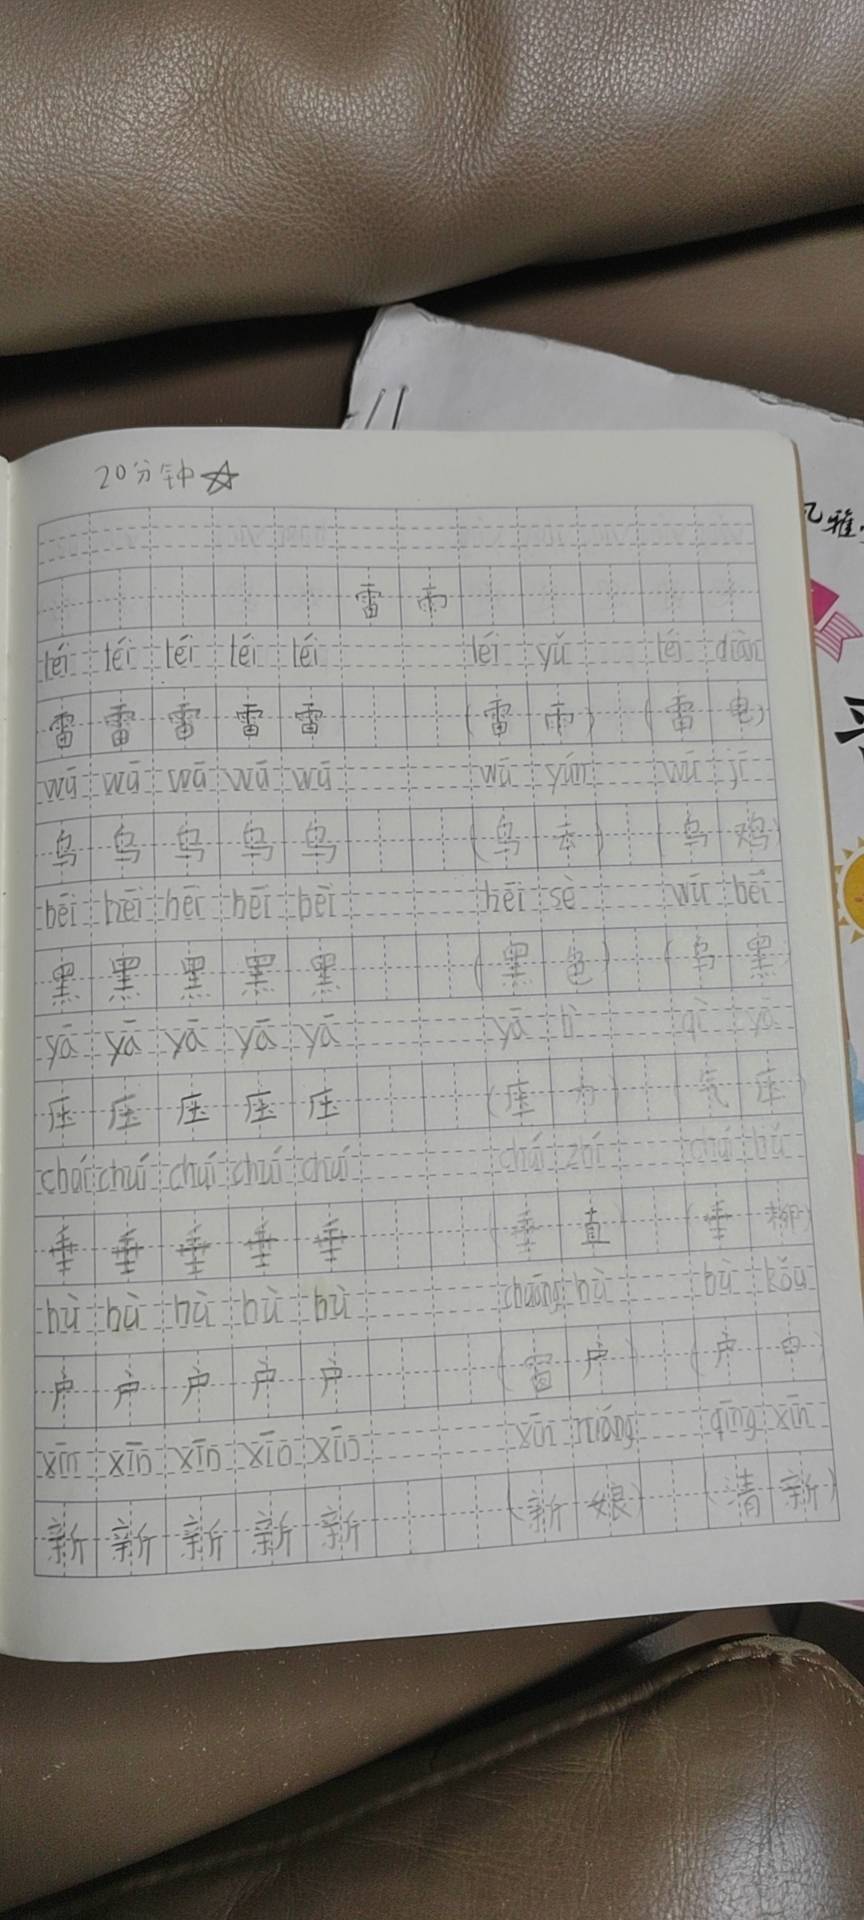 20分钟☆
雷雨
léi léi léi léi léi léi yǔ léi diàn
雷雷雷雷雷（雷雨）（雷电）
wū wū wū wū wū wū yún wū jī
乌乌乌乌乌（乌云）（乌鸡）
hēi hēi hēi hēi hēi hēi sè wū hēi
黑黑黑黑黑（黑色）（乌黑）
yā yā yā yā yā yā lì qì yā
压压压压压（压力）（气压）
chuí chuí chuí chuí chuí chuí zhí chuí
垂垂垂垂垂（垂直）（垂柳）
hù hù hù hù hù chuāng hù hù kǒu
户户户户户（窗户）（户口）
xīn xīn xīn xīn xīn xīn niáng qīng xīn
新新新新新（新娘）（清新）
雅